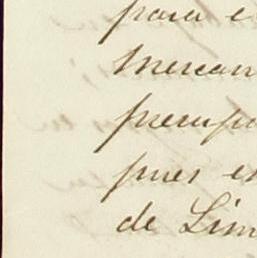 para e
Mercan
presupo
pues en
de Lim